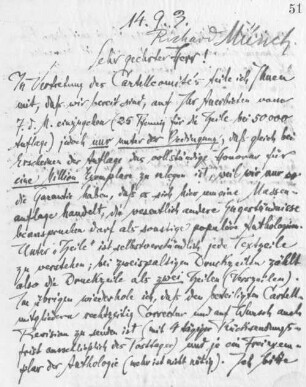 51
14. 9. 3.
Richard Münch
Sehr geehrter Herr!
In Vertretung des Cartellcomités teile ich Ihnen
mit, daß wir bereit sind, auf Ihr Anerbieten vom
7. d. M. einzugehen (25 Pfennig für die Theile bei 50000
Auflage) jedoch nur unter der Bedingung, daß gleich bei
Erscheinen der Auflage das vollständige Honorar für
eine Million Exemplare zu erlegen ist, weil wir nur so
die Garantie haben, daß es sich hier um eine Massen-
auflage handelt, die wesentlich andere Zugeständnisse
beanspruchen darf als sonstige populäre Anthologien.
Unter "Theile" ist selbstverständlich jede Textzeile
zu verstehen; bei zweispaltigen Druckzeilen zählt
also die Druckzeile als zwei Theilen (Verszeilen).
Im übrigen wiederhole ich, daß den beteiligten Cartell-
mitgliedern rechtzeitig Correctur und auf Wunsch auch
Revision zu senden ist (mit 4 tägiger Rücksendungs-
frist ausschließlich der Posttage) und je ein Freiexem-
plar der Anthologie (mehr ist nicht nötig). Ich bitte